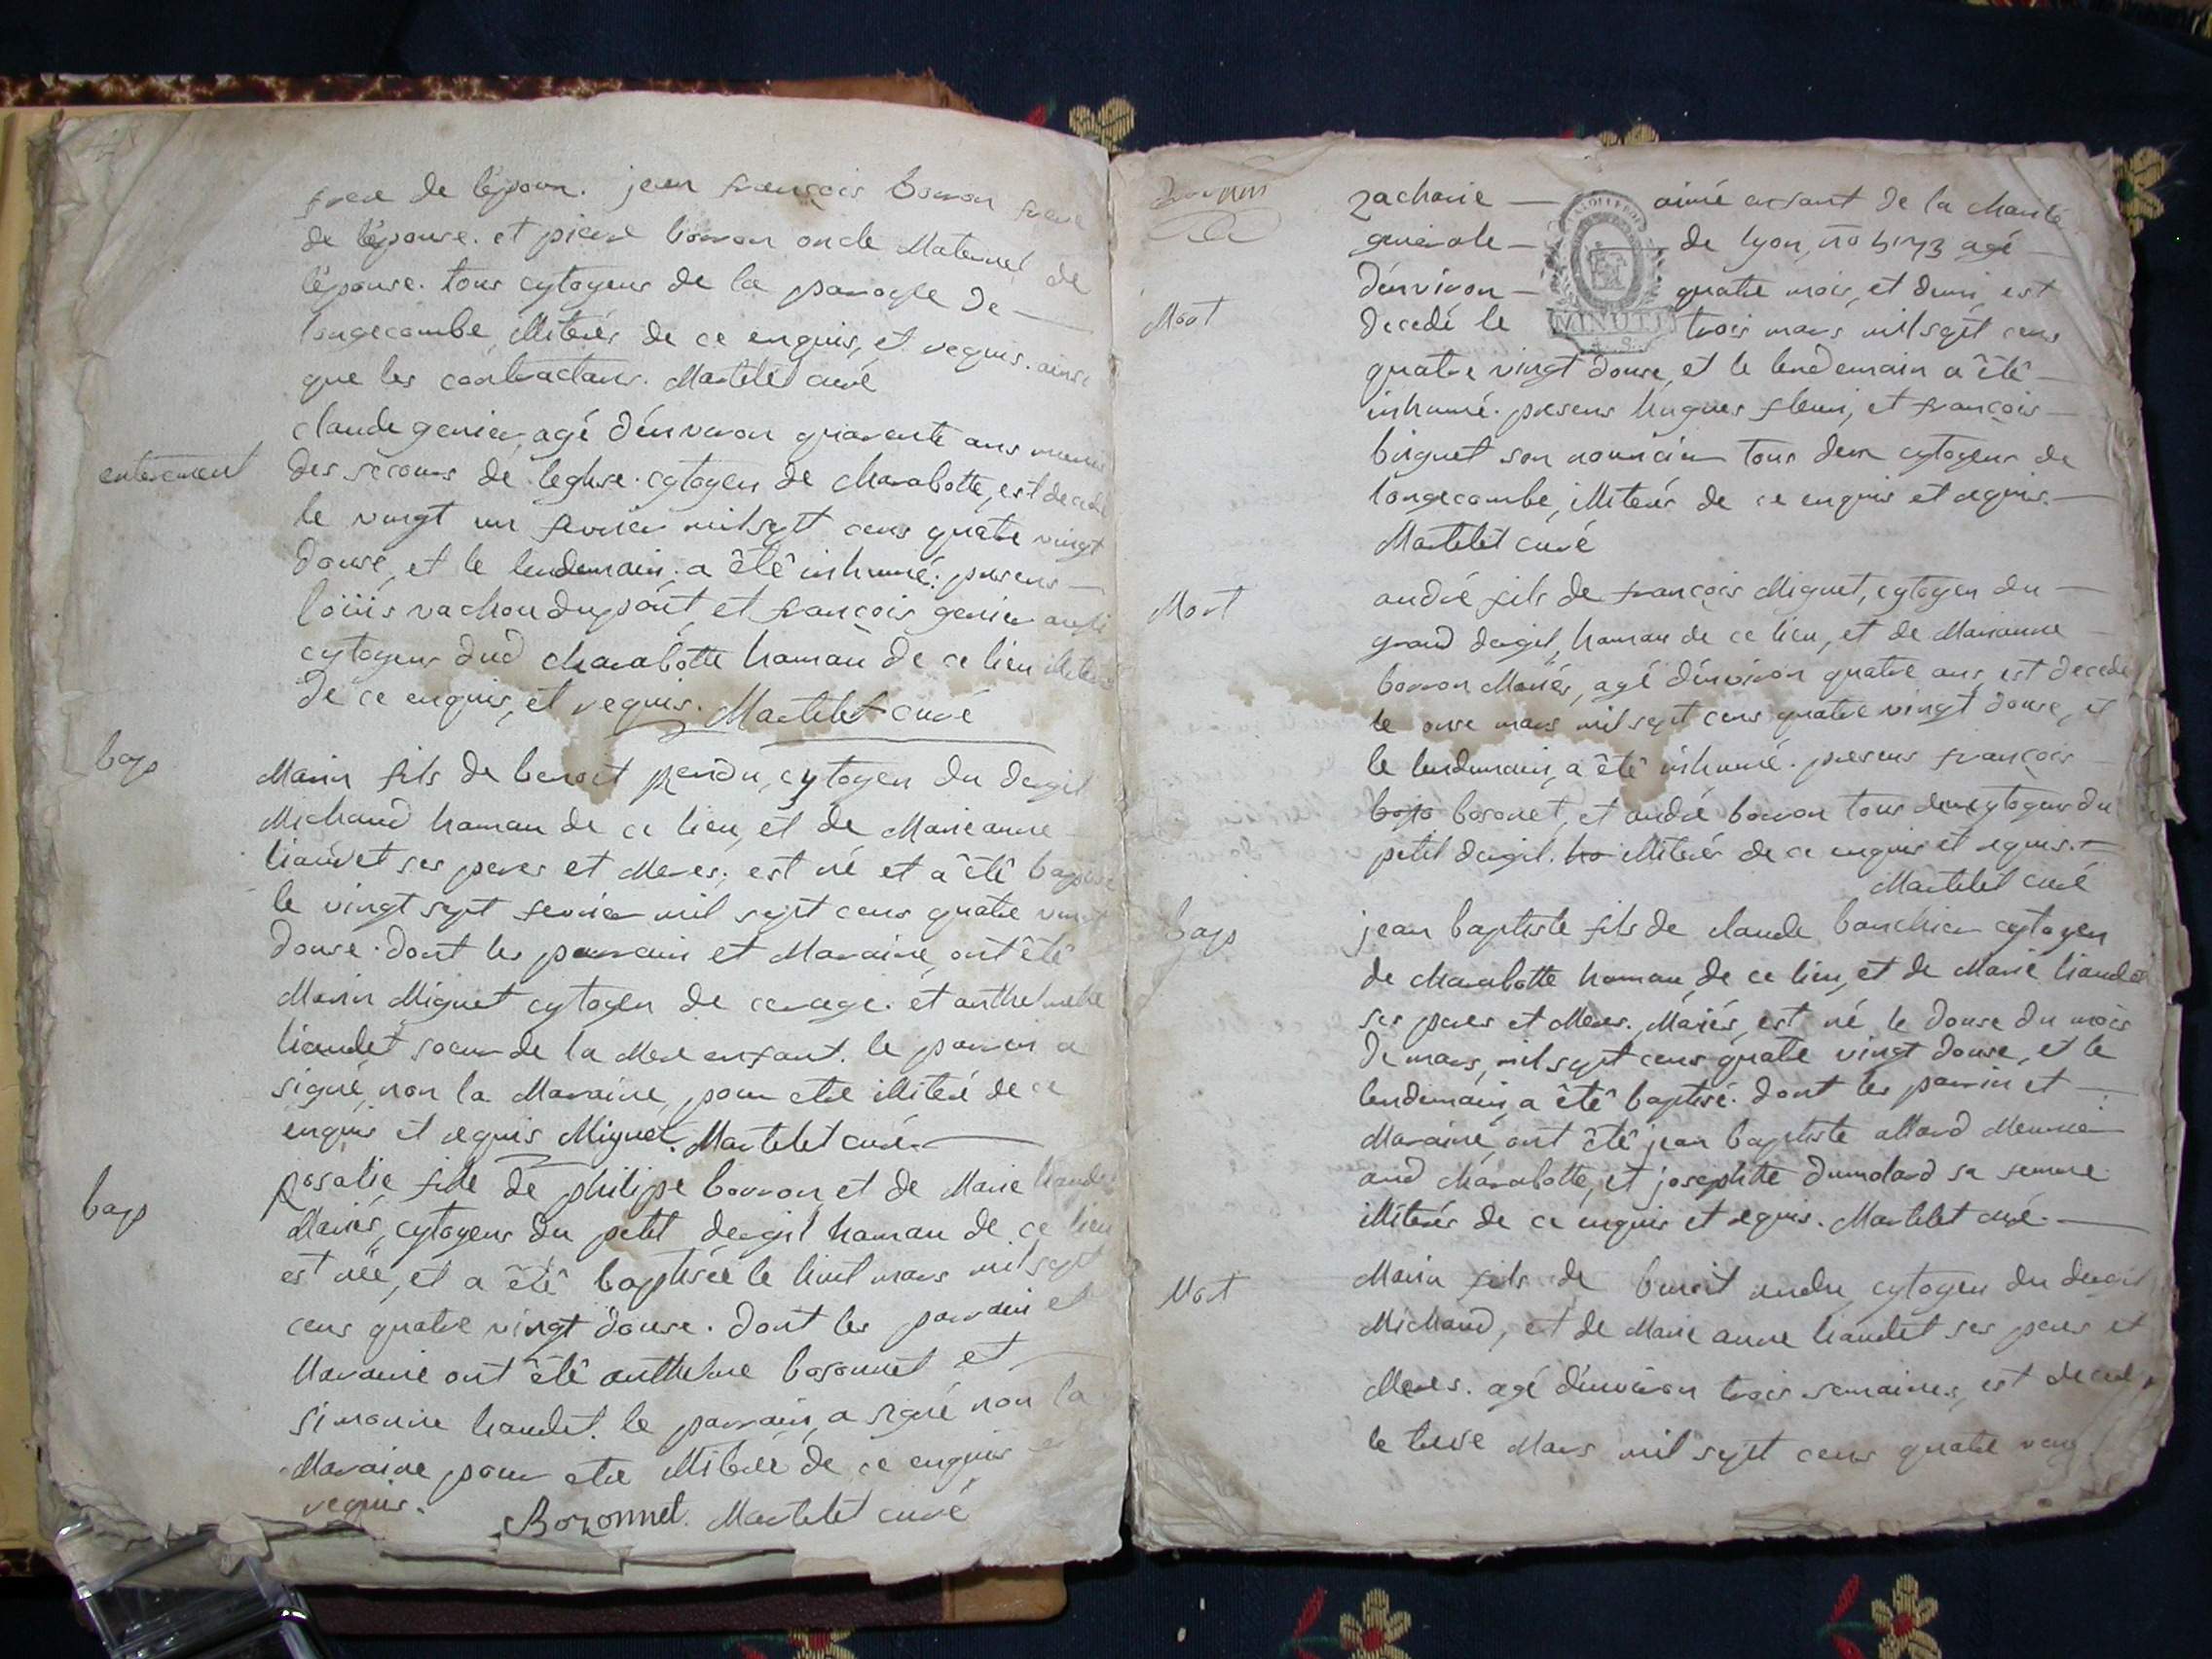 frere de l'epoux. jean françois borron frere
de l'epouse. et pierre borron oncle Maternel de
l'epouse. tous cytoyens de la paroysse de
longecombe, illiterés de ce enquis, et requis. ainsi
que les contractans. Martelet curé
enterrement
claude genier, agé d'environ quarante ans muni
des secours de leglise. cytoyen de charabotte, est decedé
le vingt un fevrier mil sept cens quatre vingt
douse, et le lendemain, a êtê inhumé: presens
loüis vachon dupont, et françois genier aussi
cytoyens dud charabotte hamau de ce lieu illiterés
de ce enquis, et requis. Martelet curé
bap
Marin fils de benoit pendu, cytoyen du dergil
Michaud hamau de ce lieu, et de Marie anne
liaudet ses peres et Meres, est né et a êtê baptisé
le vingt sept fevrier mil sept cens quatre vingt
douse. dont les parrain et Maraine, ont êtê
Marin Miguet cytoyen de
et anthelmette
liaudet soeur de la Mere enfant. le parrain a
signé, non la Maraine, pour etre illiteré de ce
enquis et requis Miguet. Martelet curé
bap
Rosalie fille de philipe borron et de Marie liaudet
Mariés, cytoyens du petit dergil hamau de ce lieu
est née, et a êtê baptisée le huit mars mil sept
cens quatre vingt douse. dont les parrain et
Maraine ont êtê anthelme bosonnet, et
simonine liaudet. le parrain, a signé non la
Maraine pour etre illiterée de ce enquis et
requis. Bozonnet. Martelet curé
zacharie aimé enfant de la charité
generale de lyon, no agé
d'environ quatre mois, et demi, est
Mort
decedé le MINUTE trois mars mil sept cens
quatre vingt douse, et le lendemain a êtê
inhumé. presens hugues fleuri, et françois
binguet son nourricier tous deux cytoyens de
longecombe, illiterés de ce enquis et requis.
Martelet curé
Mort
andré fils de françois Miguet, cytoyen du
grand dergil, hamau de ce lieu, et de Marianne
borron Mariés, agé d'environ quatre ans, est decedé
le onse mars mil sept cens quatre vingt douse, et
le lendemain, a êtê inhumé. presens françois
bosonet, et andré borron tous deux cytoyens du
petit dergil. illiterés de ce enquis et requis.
Martelet curé
bap
jean baptiste fils de claude banchier cytoyen
de charabotte hamau, de ce lieu, et de Marie liaudet
ses peres et Meres. Mariés, est né le douse du mois
de mars, mil sept cens quatre vingt douse, et le
lendemain, a êtê baptisé. dont les parrin et
Maraine, ont êtê jean baptiste allard Meunier
aud charabotte, et josephtte dumolard sa femme
illiterés de ce enquis et requis. Martelet curé.
Mort
Marin fils de benoit cytoyen du dergil
Michaud, et de Marie anne liaudet ses peres et
Meres. agé d'environ trois semaines, est decedé
le treise Mars mil sept cens quatre vingt